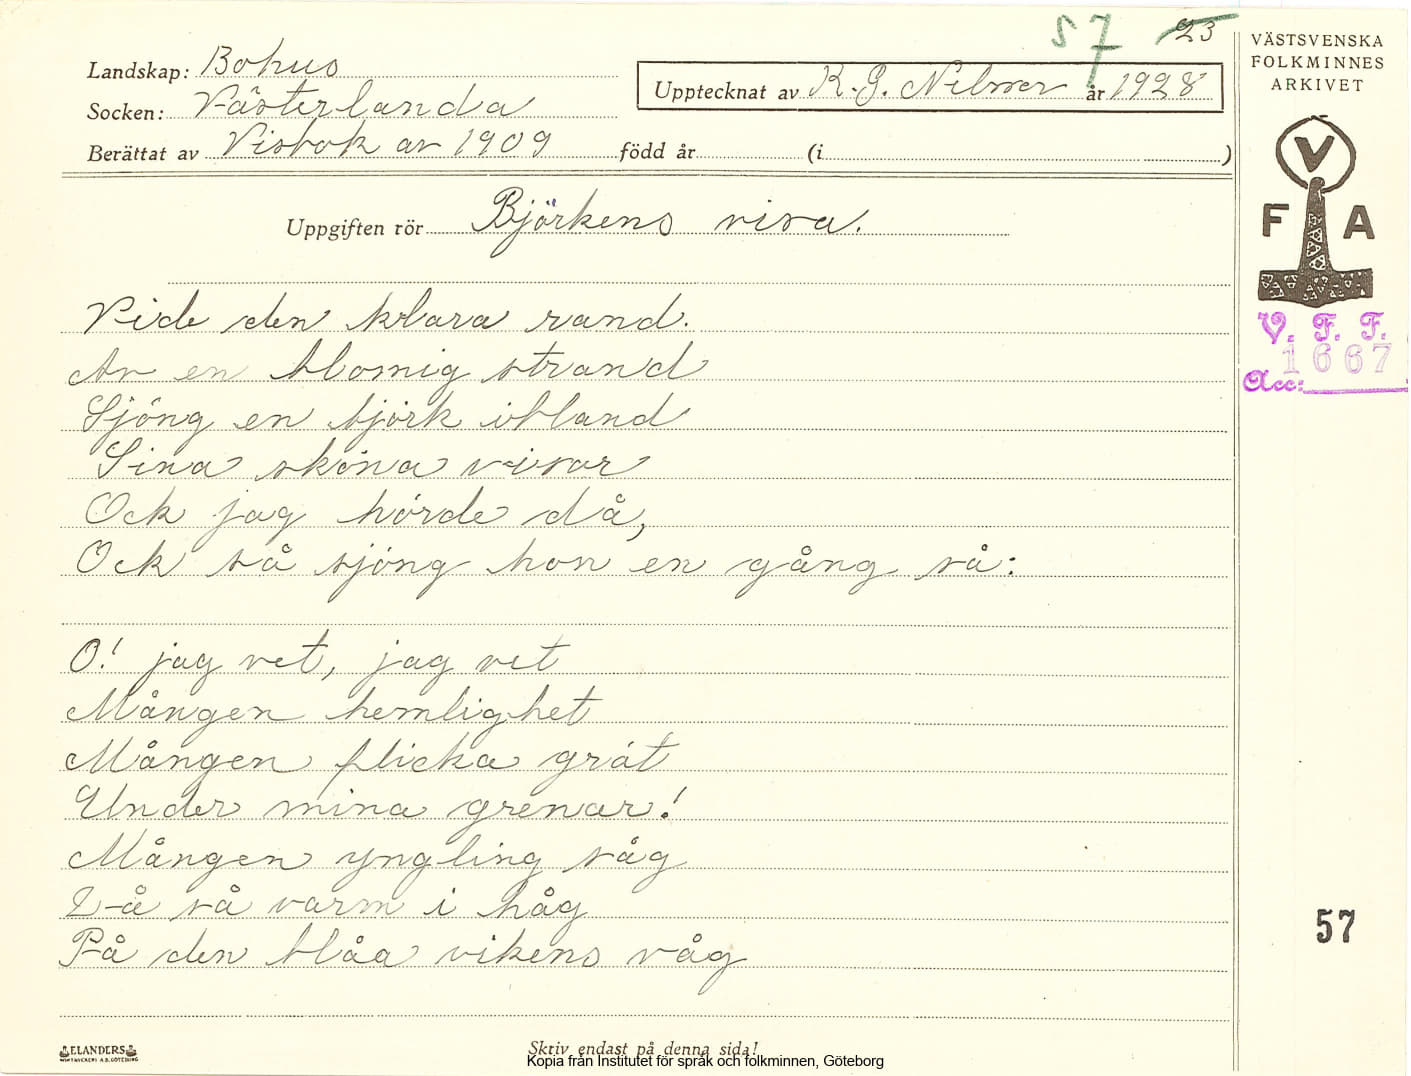 57 23
Landskap: Bohus
Socken: Västerlanda
Berättat av Visbok av 1909 född år (i )
Upptecknat av K. G. Nilsson år 1928
Uppgiften rör Björkens visa.
Vide den klara rand.
Av en blomig strand
Sjöng en björk ibland
Sina sköna visor
Ock jag hörde då,
Ock så sjöng hon en gång så:
O! jag vet, jag vet
Mången hemlighet
Mången flicka grät
Under mina grenar!
Mången yngling såg
Så varm i håg
På den blåa vikens våg
ELANDERS
Skriv endast på denna sida!
Kopia från Institutet för språk och folkminnen, Göteborg
VÄSTSVENSKA
FOLKMINNES
ARKIVET
V
F A
V. F. F.
1667
Acc:
57